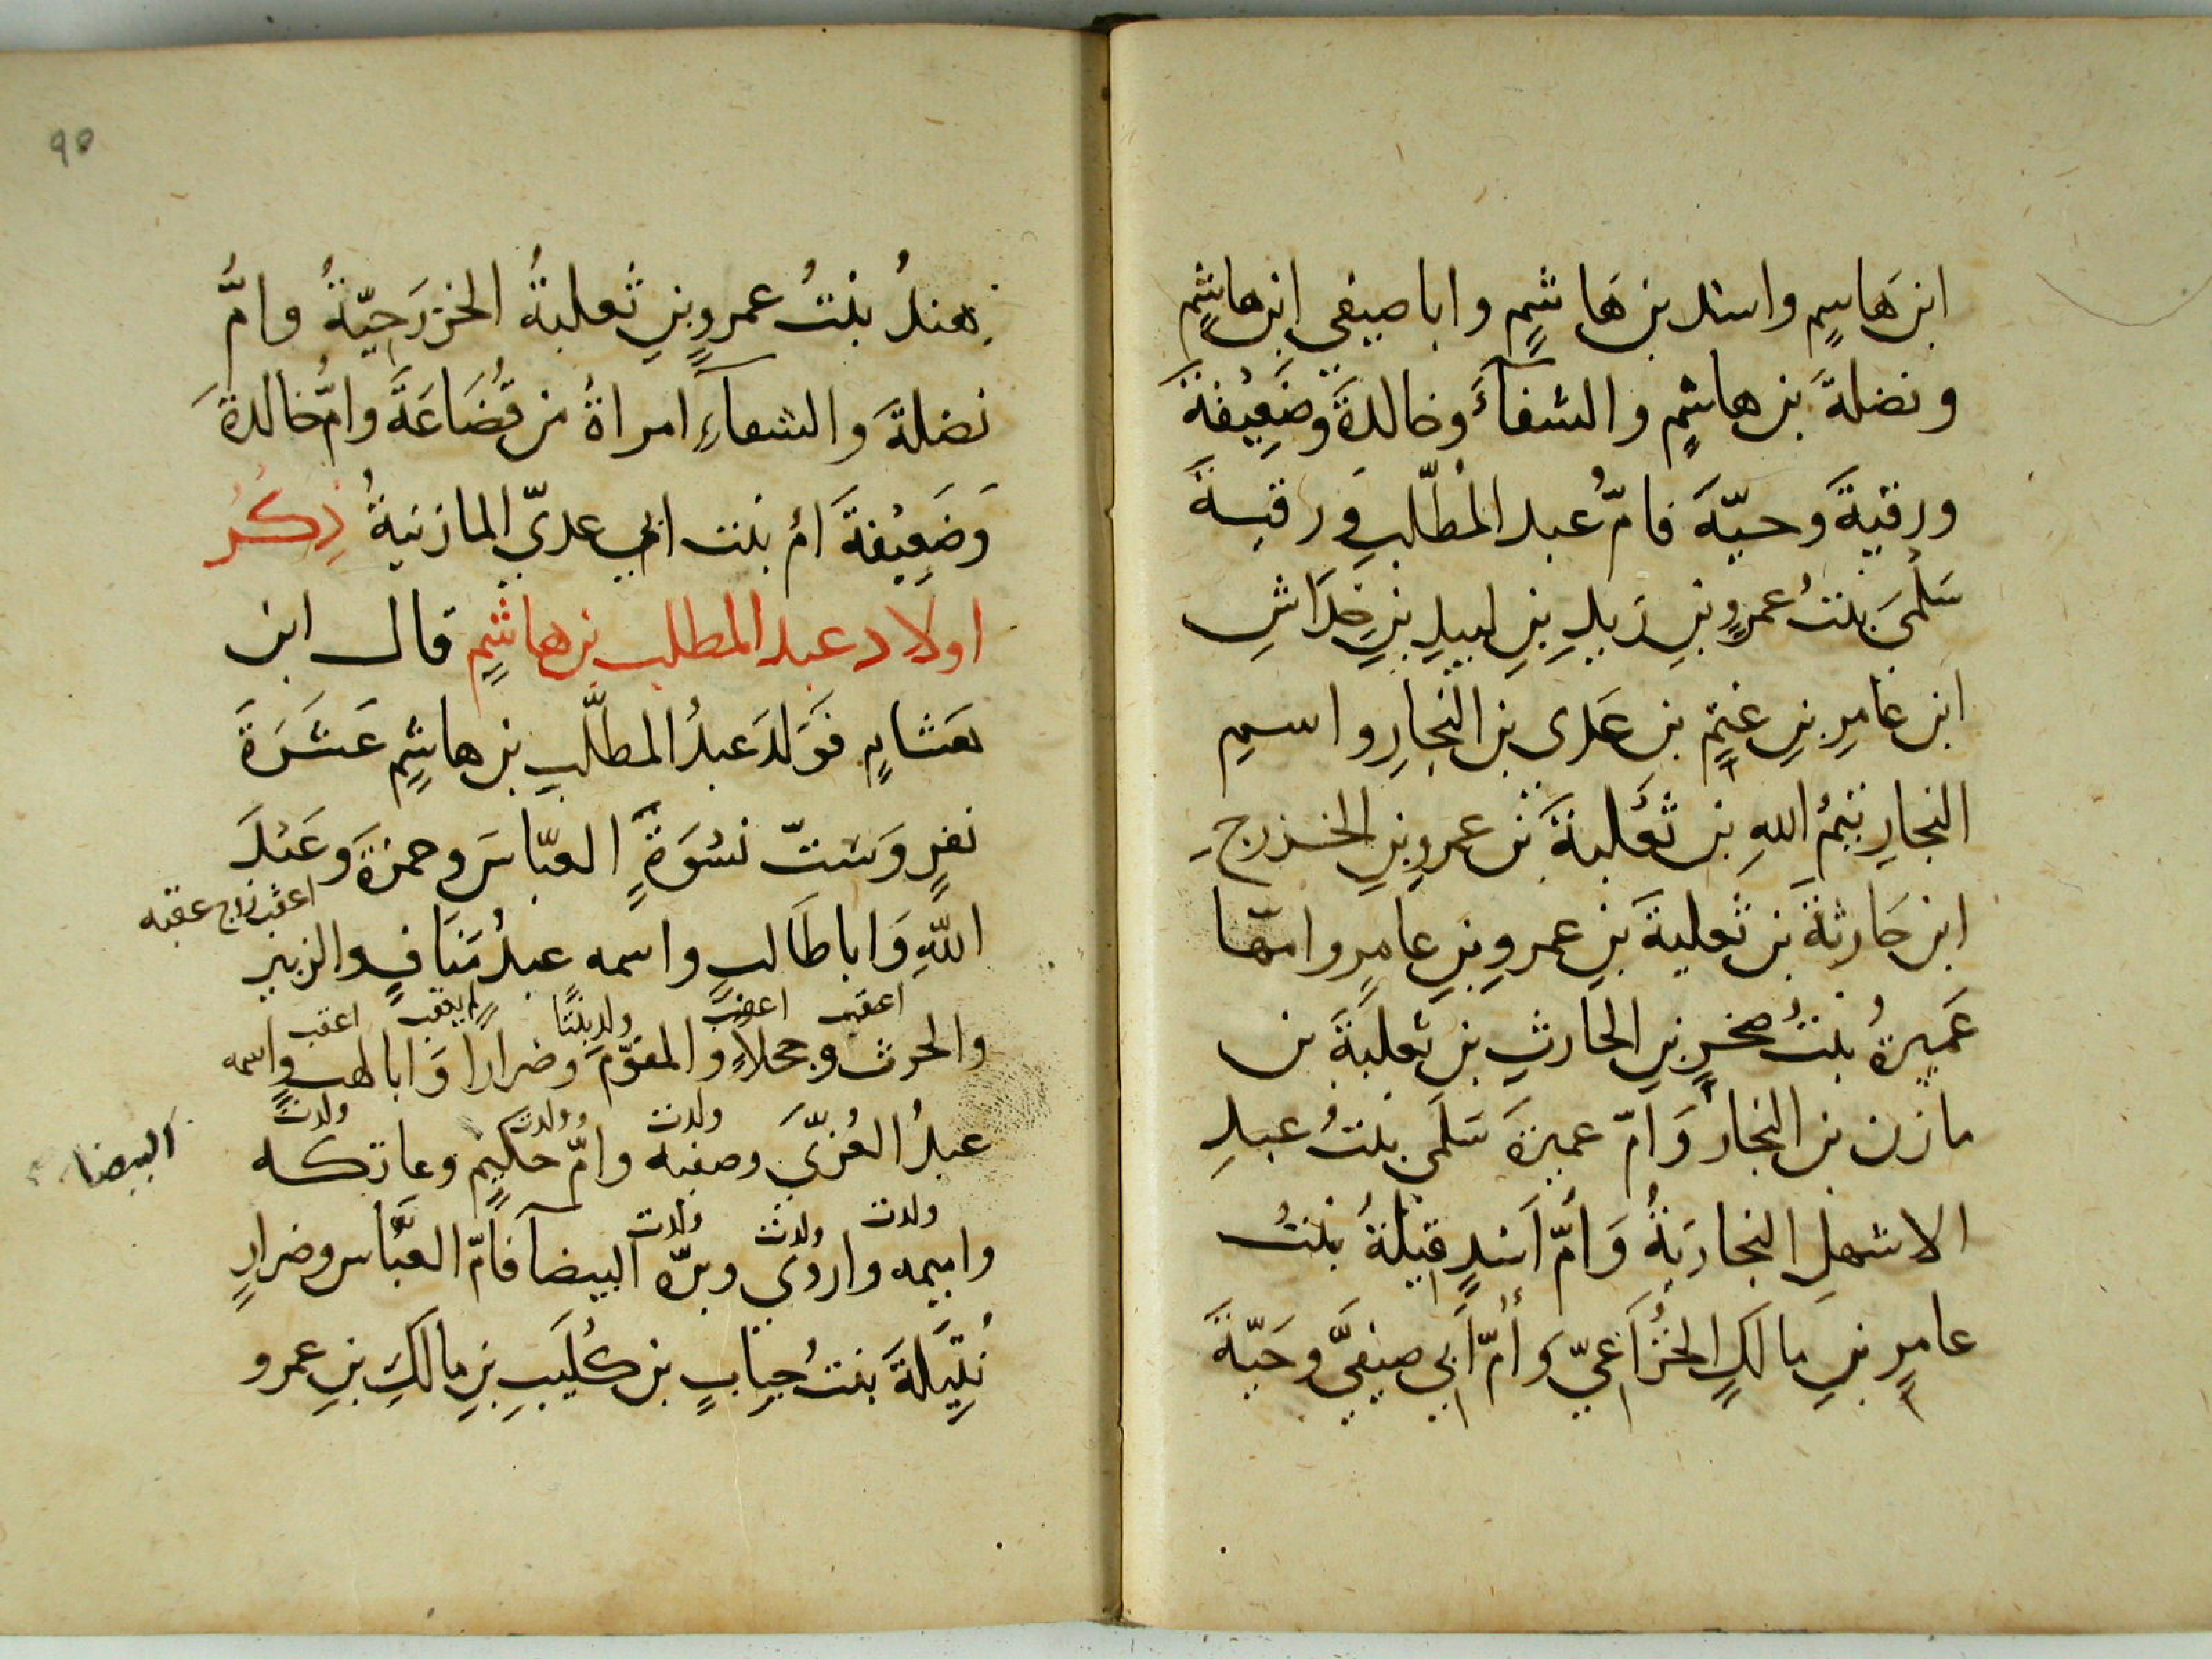 ابن هَاشِمٍ واسَد بن هَاشِمٍ وابا صيفي ابن هاشِمٍ
ونضلةَ بن هاشِمٍ والشفآءَ وخالدةَ وضَعِيْفةَ
ورقيةَ وحيّةَ فامُّ عبد المُطّلبِ ورقيـة
سَلْمَى بنتُ عمرٍو بنِ زيدِ بنِ لبيدِ بنِ خِدَاشِ
ابن عامِرِ بنِ غنمِ بن عَدى بن النجارِ واسم
النجارِ تيمُ اللهِ بن ثعْلبةَ بن عمرِو بنِ الخـزرجِ
ابن حَارثةَ بن ثعلبةَ بنِ عمرِو بنِ عامرٍ وامّها
عَمِيرةُ بنتُ صخرِ بنِ الحارثِ بن ثعلبةَ بن
مازن بن النجار وَامّ عميرةَ سَلمَى بنتُ عبدِ
الاشهلِ النجاريَةُ وَامّ اَسَدٍ قيلةُ بنتُ
عامرِ بنِ مالكٍ الخُزَاعِيّ وَامّ اَبى صيفيَّ وحَيّةَ
٩٥
هندُ بنتُ عمرِو بنِ ثعلبةُ الخزرَجِيّةُ وامُّ
نضلةَ والشفآءِ امراةُ من قُضَاعَةَ وامُّ خالدةَ
وَضَعِيْفةَ امُ بنت ابى عدىّ المازنيةُ ذِكْـرُ
اولاد عبد المطلب بن هاشِمٍ قالـ ابن
هشامٍ فَوَلدَ عبدُ المطلّبِ بن هاشِمٍ عَشَرَةَ
نفرٍ وَستّ نسْوَةٍ العبّاسَ وحمزةَ وَعَبْدَ
اعقب
عقبه
اللهِ وَابا طَالبٍ واسمه عبدُ مَنَافٍ والزبير
اعقب
ولد بنتا
لم يعقب
اعقب
والحرث وجحلاً والمقوّمَ وضرارا وَابا لهب واسمه
ولدت
ولدت
ولدت
عبدُ العُزّىَ وصفيه وامّ حكيمٍ وعاتكـه
البيضا
ولدت
ولدت
ولدت
واميمه واروى وبرّه البيضآ فامّ العبَّاس وضرارٍ
نُتَيلَةَ بنتُ جنابٍ بن كُلَيبِ بنِ مالكِ بنِ عمرو